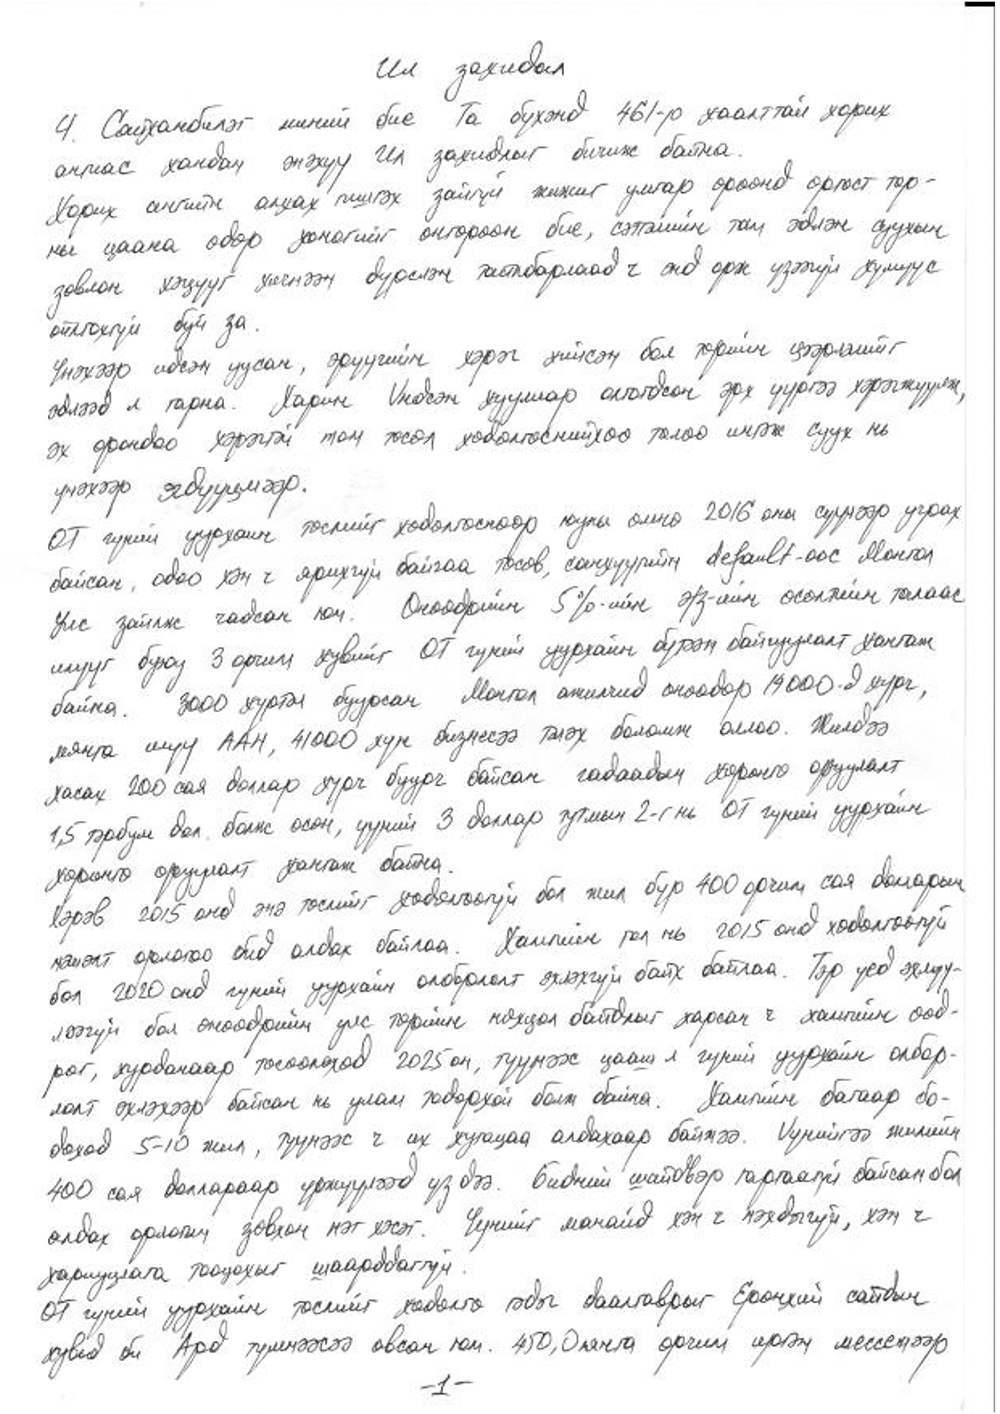 Ил захидал
Ч. Сайханбилэг миний бие Та бүхэнд 461-р хаалттай хорих
ангиас хандан энэхүү Ил захидлыг бичиж байна.
Хорих ангийн алхах гишгэх зайгүй жижиг умгар өрөөнд өргөст тор-
ны цаана өдөр хоногийг өнгөрөөн бие, сэтгэлийн там эдлэн суухын
зовлон хэцүүг хичнээн дүрслэн тайлбарлаад ч энд орж үзээгүй хүмүүс
ойлгохгүй буй за.
Үнэхээр идсэн уусан, эрүүгийн хэрэг хийсэн бол төрийн цээрлэлийг
эдлээд л гарна. Харин Үндсэн хуулиар олгогдсон эрх үүргээ хэрэгжүүлж,
эх орондоо хэрэгтэй том төсөл хөдөлгөснийхөө төлөө ингэж суух нь
үнэхээр эгдүүцмээр.
ОТ гүний уурхайн төслийг хөдөлгөснөөр юуны өмнө 2016 оны сүүлчээр учрах
байсан, одоо хэн ч ярихгүй байгаа төсөв, санхүүгийн default-аас Монгол
Улс зайлж чадсан юм. Өнөөдрийн 5%-ийн эдийн өсөлтийн талаас
илүүг буюу 3 орчим хувийг ОТ гүний уурхайн бүтээн байгуулалт хангаж
байна. 3000 хүртэл буурсан Монгол ажилчид өнөөдөр 14000-д хүрч,
мянга илүү ААН, 41000 хүн бизнесээ тэлэх боломж оллоо. Жилдээ
хасах 200 сая доллар хүрч буурч байсан гадаадын хөрөнгө оруулалт
1,5 тэрбум дол. болж өсөн, үүний 3 доллар тутмын 2-г нь ОТ гүний уурхайн
хөрөнгө оруулалт хангаж байна.
Хэрэв 2015 онд энэ төслийг хөдөлгөөгүй бол жил бүр 400 орчим сая долларын
нэмэлт орлогоо бид алдах байлаа. Хамгийн гол нь 2015 онд хөдөлгөөгүй
бол 2020 онд гүний уурхайн олборлолт эхлэхгүй байх байлаа. Тэр үед эхлүү-
лээгүй бол өнөөдрийн улс төрийн нөхцөл байдлыг харсан ч хамгийн өөд-
рөг, хурдаарaар төсөөлөхөд 2025 он, түүнээс цааш л гүний уурхайн олбор-
лолт эхлэхээр байсан нь улам тодорхой болж байна. Хамгийн багаар бо-
доход 5-10 жил, түүнээс ч их хугацаа алдахаар байжээ. Үүнийгээ жилийн
400 сая доллараар үржүүлээд үз дээ. Бидний шийдвэр гаргаагүй байсан бол
алдах орлогын зөвхөн нэг хэсэг. Үүнийг манайд хэн ч нэхдэггүй, хэн ч
хариуцлага тооцохыг шаарддаггүй.
ОТ гүний уурхайн төслийг хөдөлгө гэдэг даалгаврыг Ерөнхий сайдын
хувьд би Ард түмнээсээ авсан юм. 450,0 мянга орчим иргэн мессежээр
-1-